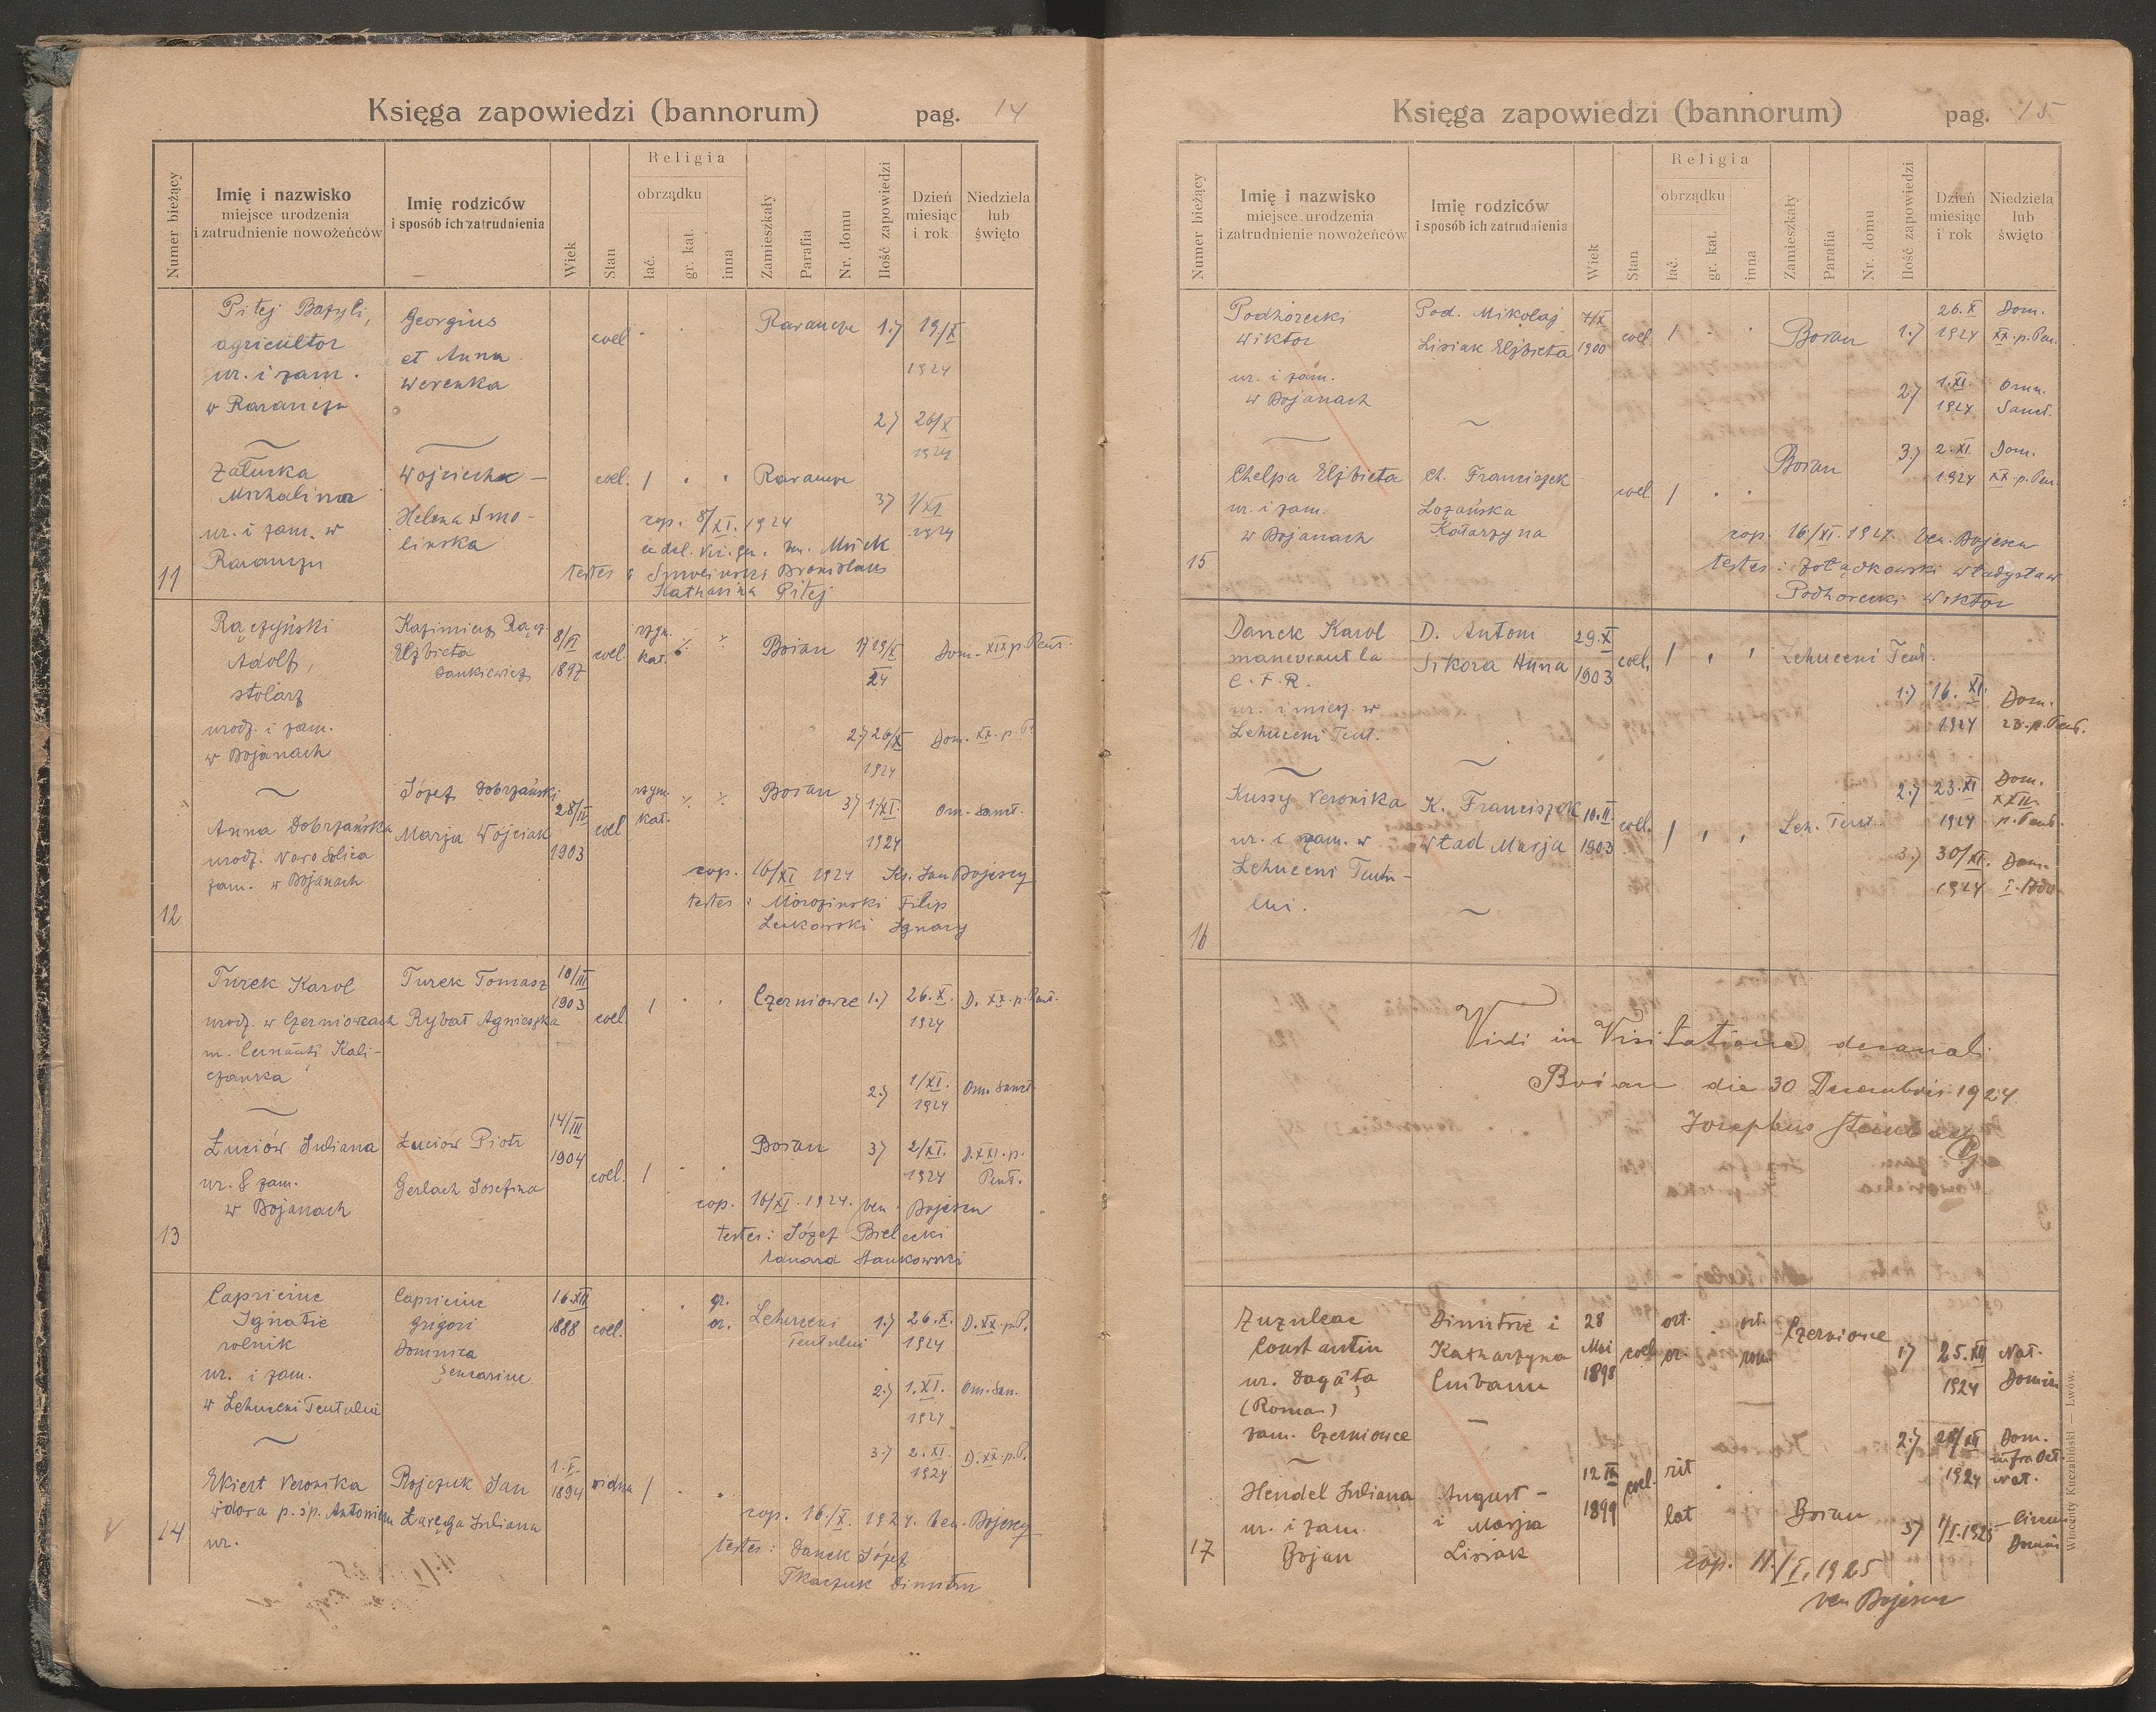 Księga zapowiedzi (bannorum) pag. 14
Numer bieżący
Imię i nazwisko
miejsce urodzenia
i zatrudnienie nowożeńców
Imię rodziców
i sposób ich zatrudnienia
Wiek
Stan
Religia
obrządku
łać.
gr. kat.
inna
Zamieszkały
Parafia
Nr. domu
Ilość zapowiedzi
Dzień
miesiąc
i rok
Niedziela
lub
święto
Pitej Bazyli, Georgius coel Rarancze 1.) 19/X
agricultor et Anna 1924
ur. i zam. Werenka
w Raranczu 2.) 26/X
1924
Załuska Wojciecha – coel. / Rarancze
Michalina 3) 1/XI
ur. i zam. w Helena Smo- cop. 8/XI. 1924 1924
Rarancza linska
testes : Smolinski Bronislaus
11 Katharina Pitej
Rączyński Kazimierz Rącz. 8/VI coel. rzym. Boian 1) 19/X Dom. XIX p. Pent.
Adolf, Elżbieta 1897 kat. 24
stolarz Jankiewicz
urodz. i zam. 2.) 26/X Dom. XX. p. P.
w Bojanach 1924
Józef Dobrzański 28/IV rzym. Boian 3) 1./XI. Om. Sanct.
Anna Dobrzańska Marja Wojciak 1903 coel kat. 1924
urodz. Nowo Solica
zam. w Bojanach cop. 16/XI 1924 Ks. Jan Bojescu
testes : Morozinski Filip
12 Lenkowski Ignacy
Turek Karol Turek Tomasz 10/III 1903 coel. / Czerniowce 1.) 26. X. D. XX. p. Pent.
urodz. w Czerniowcach Rybat Agnieszka 1924
m. Cernăuti Kali-
czanka 2.) 1/XI. Om. Sanct.
1924
Łuciów Juliana Łuciów Piotr 14/III 1904 coel. / Boian 3) 2/XI. D. XXI. p.
ur. & zam. Gerlach Josefina 1924 Pent.
w Bojanach cop. 16/XI. 1924. ven. Bojescu
13 testes : Józef Bielecki
Stankowski
Capriciuc Capriciuc 16.XII gr. Lehuceni 1.) 26. X. D. XX. p. P.
Ignatie Grigori 1888 coel. or. Teutului 1924
rolnik Domnica
ur. i zam. 2.) 1. XI. Om. San.
w Lehuceni Teutului 1924
3.) 2. XI. D. XX. p. P.
Ekiert Veronika Bojczuk Jan 1. V. 1894 widua / 1924
wdowa p. śp. Antonim Łaręga Juliana cop. 16./X. 1924. ven. Bojescu
14 ur. testes : Danek Józef
Tkaczuk Dimitru
Księga zapowiedzi (bannorum) pag. 15
Numer bieżący
Imię i nazwisko
miejsce urodzenia
i zatrudnienie nowożeńców
Imię rodziców
i sposób ich zatrudnienia
Wiek
Stan
Religia
obrządku
łać.
gr. kat.
inna
Zamieszkały
Parafia
Nr. domu
Ilość zapowiedzi
Dzień
miesiąc
i rok
Niedziela
lub
święto
Podhorecki Pod. Mikołaj 7/X coel / Boian 1.) 26. X Dom.
Wiktor Lisiak Elżbieta 1900 1924 XX. p. Pen.
ur. i zam. 2) 1. XI. Omn.
w Bojanach 1924 Sanct.
Boian 3.) 2. XI. Dom.
Chelpa Elżbieta Ch. Franciszek coel / 1924 XX p. Pen.
ur. i zam. Łozańska
w Bojanach Katarzyna cop. 16/XI. 1924. Ven. Bojescu
15 testes : Żołądkowski Władysław
Podhorecki Wiktor
Danek Karol D. Antoni 29. X coel. / Lehuceni Teut.
manevrant la Sikora Anna 1903
C. F. R. 1.) 16. XI. Dom.
ur. i miesz. w 1924 p. Pent.
Lehuceni Teut.
2.) 23. XI Dom.
Kussy Veronika K. Franciszek 10. II. coel. / Leh. Teut. 1924 XXII. p. Pent.
ur. i zam. w Wład Marja 1903 3.) 30/XI. Dom.
Lehuceni Teutu- 1924 I. Adv.
lui.
16
Vidi in Visitatione decanali
Boian die 30 Decembris 1924
Josephus
Zuzuleac Dimitrie i 28 ort. ort. Czerniowce
Constantin Katharzyna Mai coel or. rom. 1) 25. XII Nat.
ur. Dagâța Ciubanu 1898 1924 Domin
(Roman)
zam. Czerniowce 2.) 28/XII Dom.
12 III 1924 infra Oct. Nat.
Hendel Juliana August – 1899 coel. rit
ur. i zam. i Marja lat Boian 3) 1/I. 1925 Circum
17 Bojan Lisiak cop. 11./I. 1925 Domini
ven Bojescu
Wincenty Kuczabiński — Lwów.